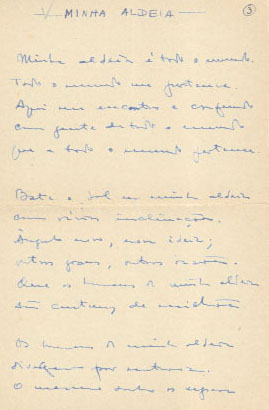 MINHA ALDEIA
3
Minha aldeia é todo o mundo.
Todo o mundo me pertence.
Aqui me encontro e confundo
com gente de todo o mundo
que a todo o mundo pertence.
Bate o sol na minha aldeia
com várias inclinações.
Ângulo novo, nova ideia;
outros graus, outras razões.
Que os homens da minha aldeia
são centenas de milhões.
Os homens da minha aldeia
divergem por natureza.
O mesmo sonho os separa